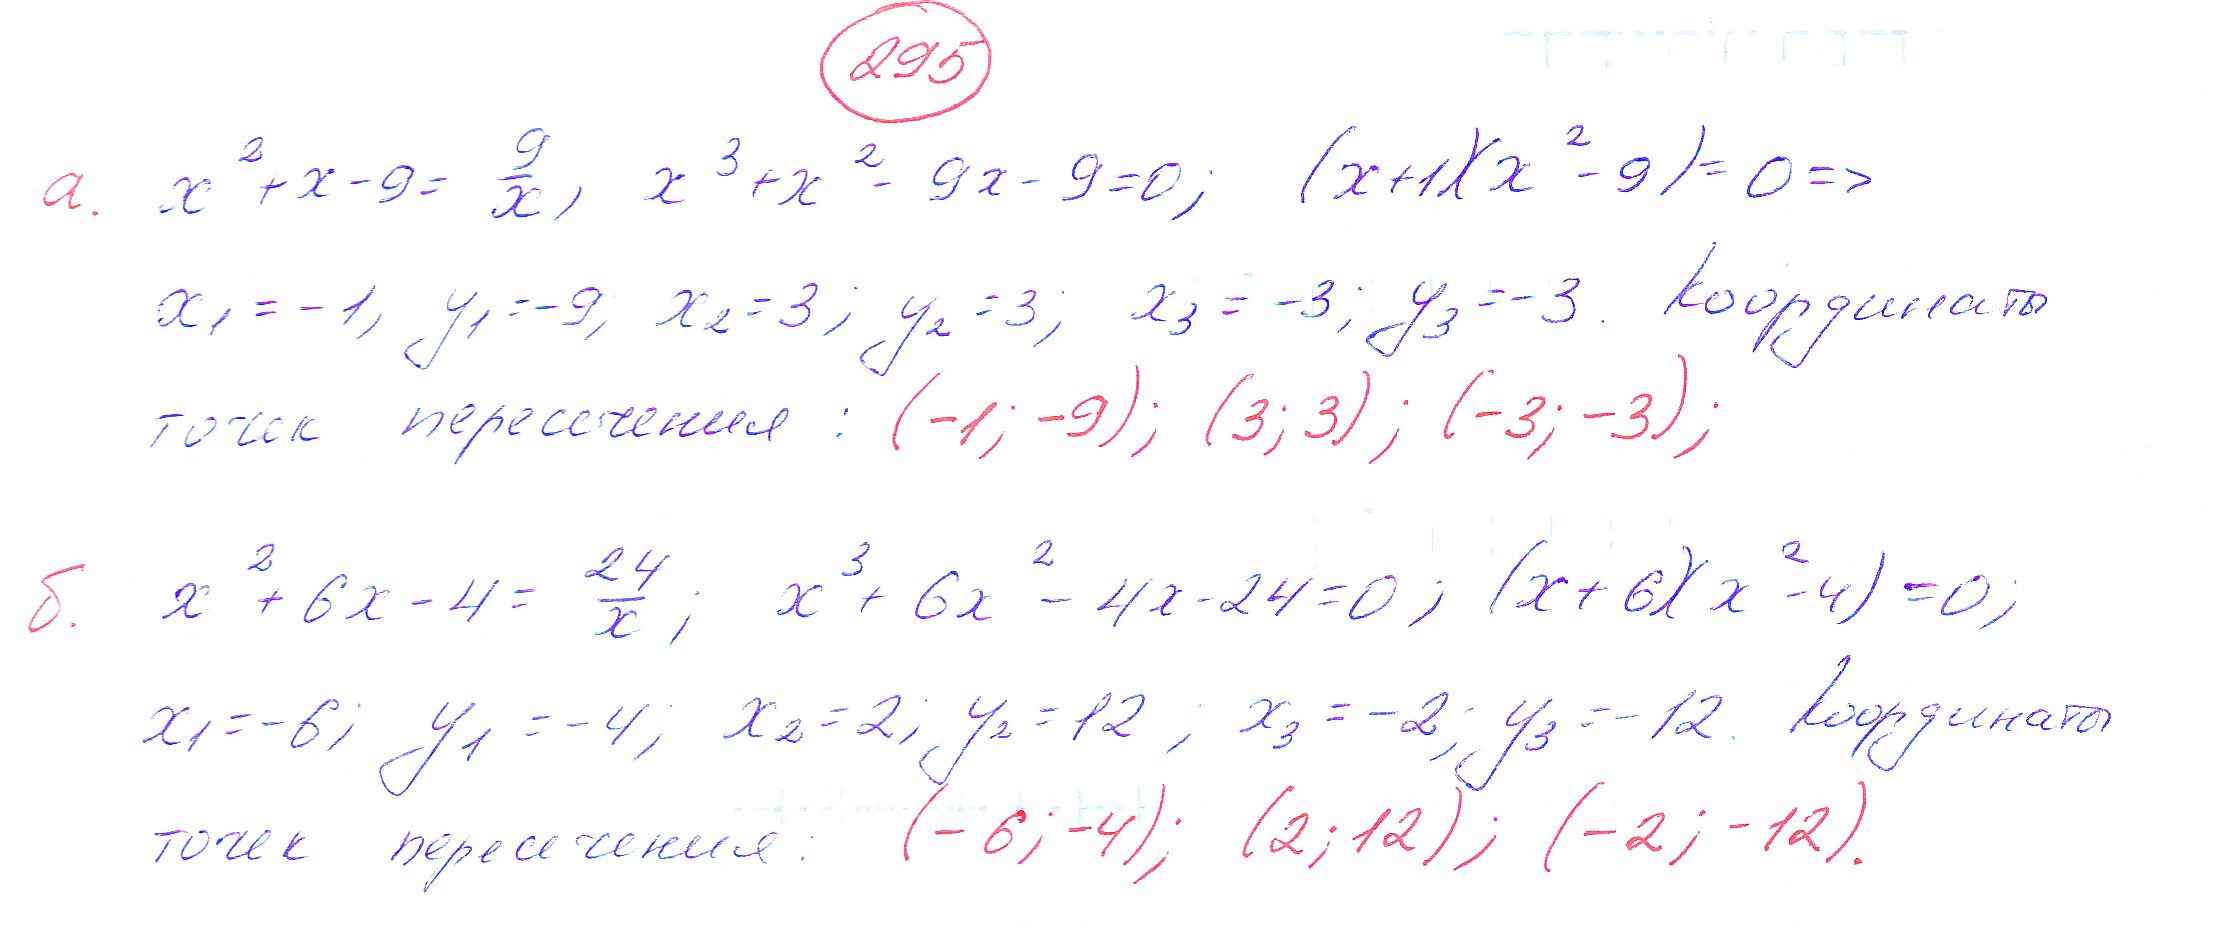 295
а. x²+x-9=9/x, x³+x²-9x-9=0; (x+1)(x²-9)=0=>
x₁=-1, y₁=-9; x₂=3; y₂=3; x₃=-3; y₃=-3. Координаты
точек пересечения: (-1;-9); (3;3); (-3;-3);
б. x²+6x-4=24/x; x³+6x²-4x-24=0; (x+6)(x²-4)=0;
x₁=-6; y₁=-4; x₂=2; y₂=12; x₃=-2; y₃=-12. Координаты
точек пересечения: (-6;-4); (2;12); (-2;-12).